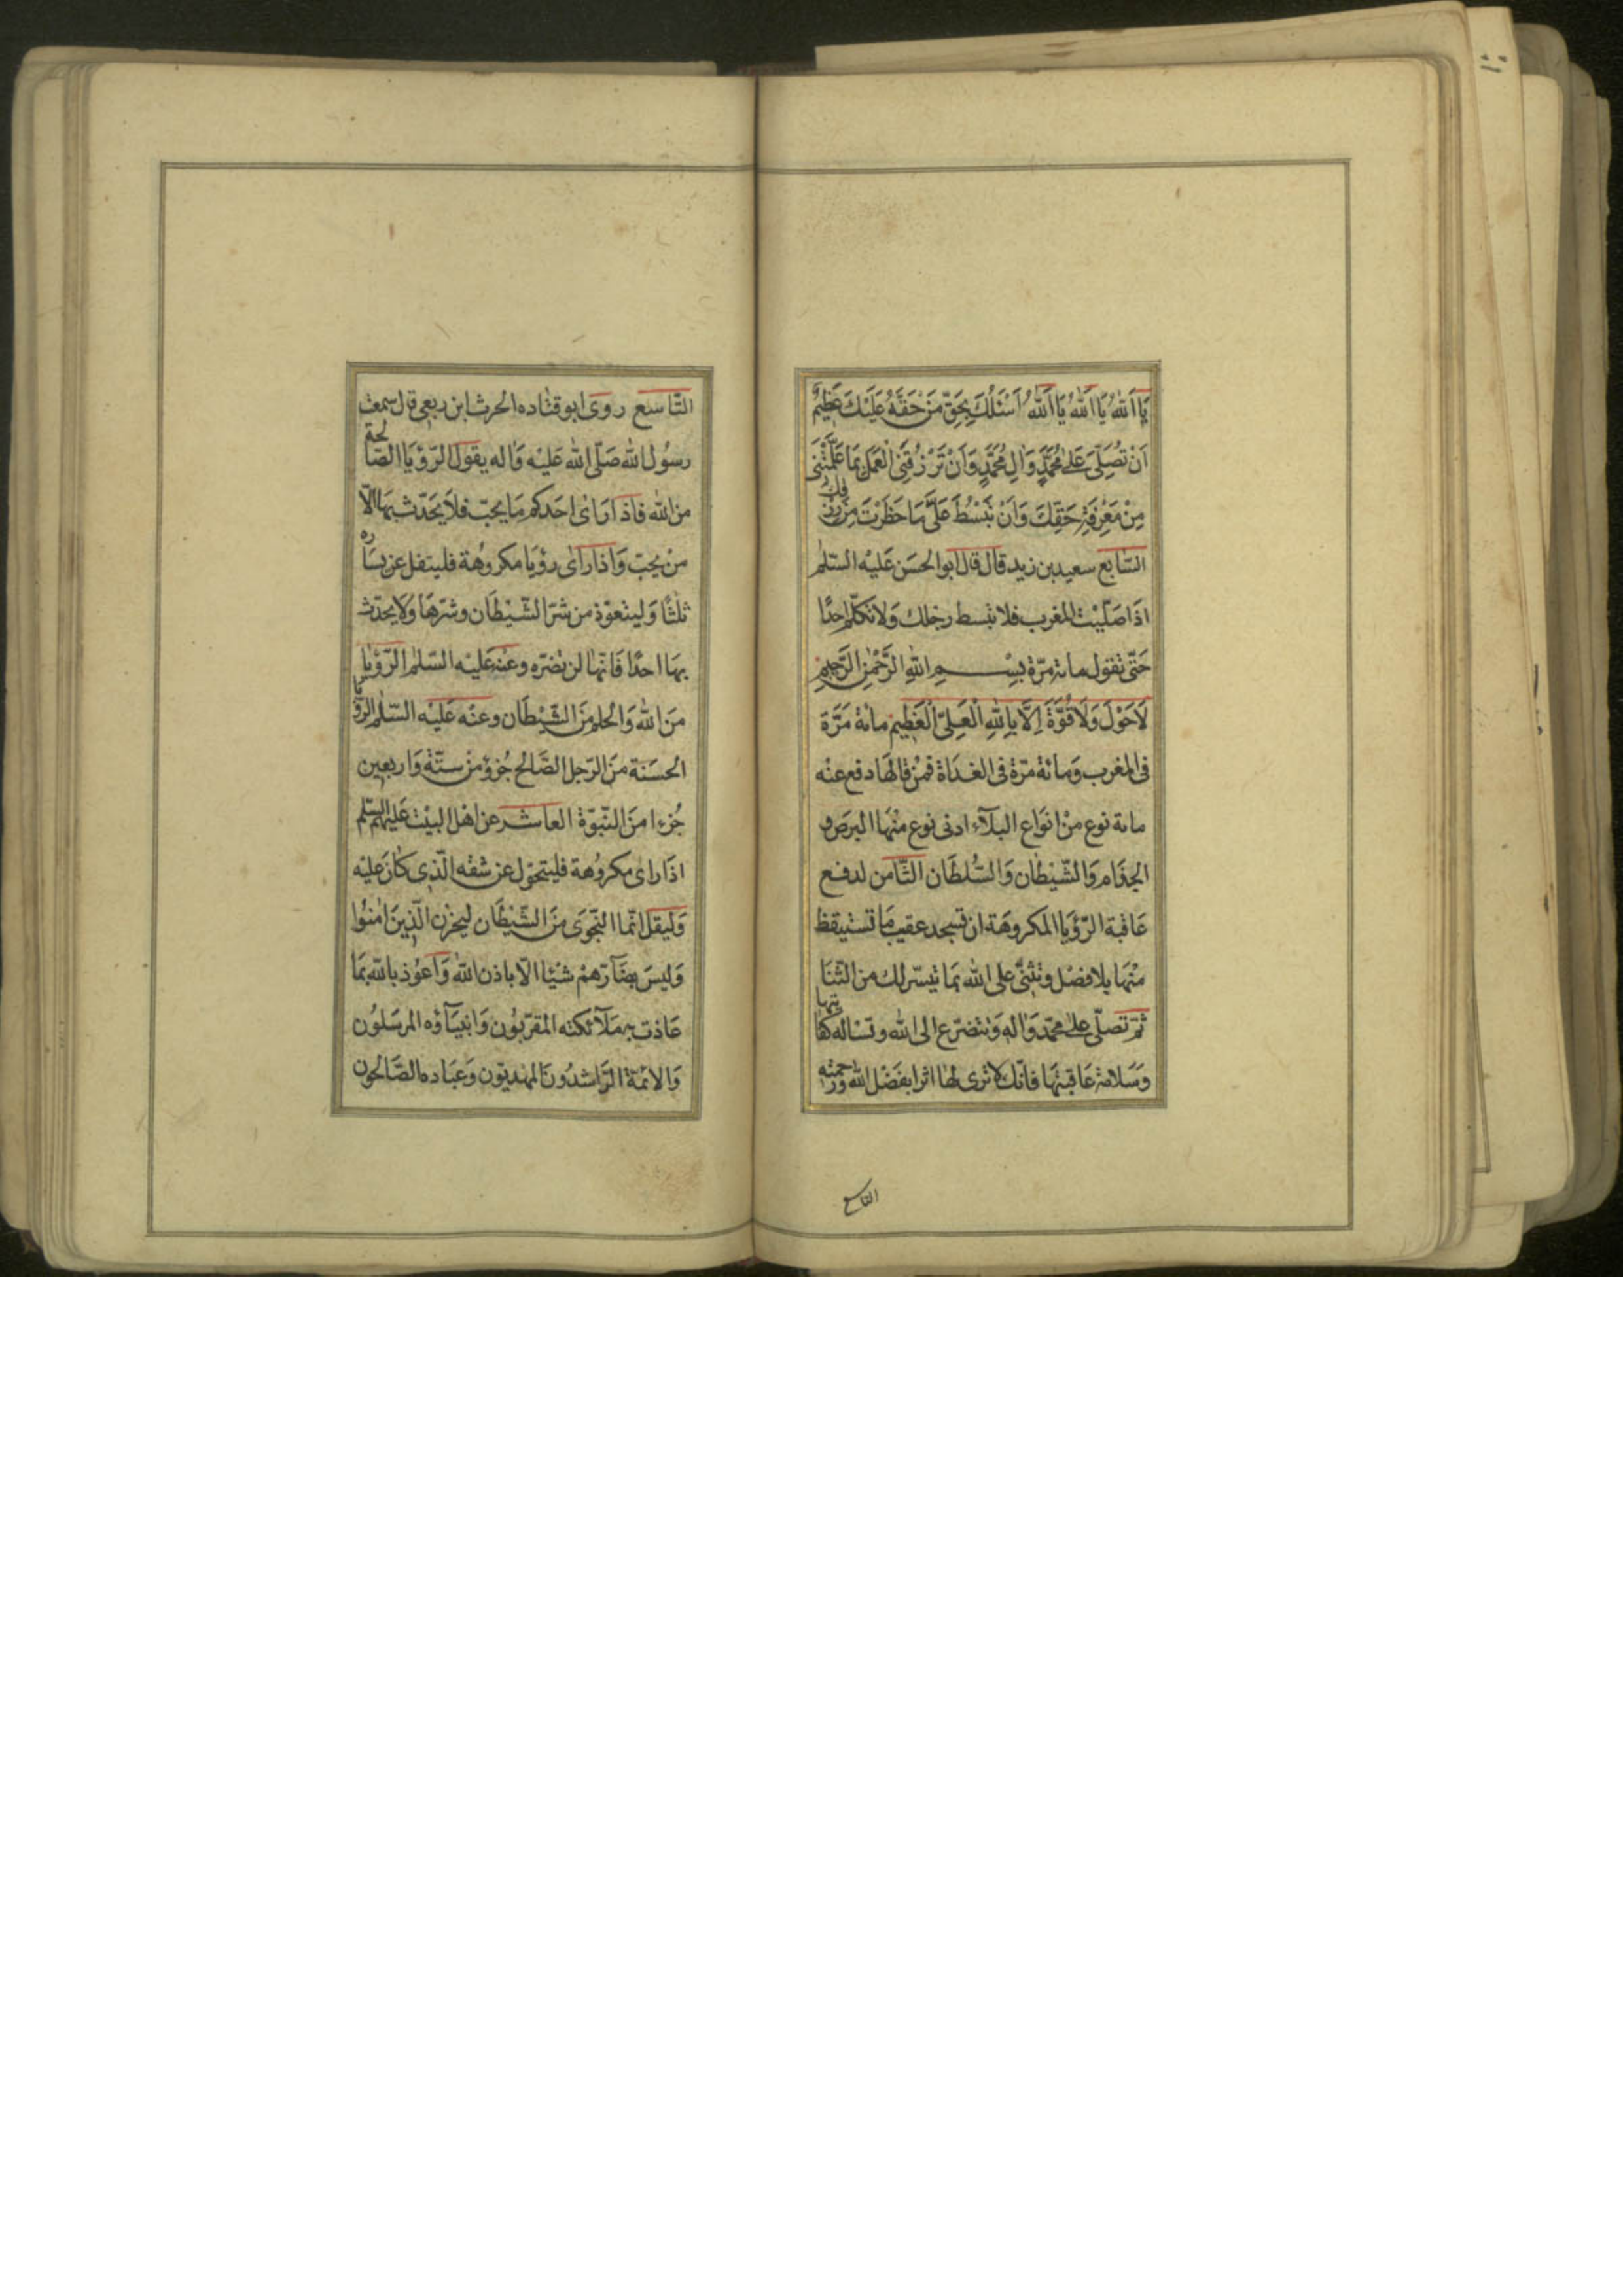 يَا اَللّٰهُ يَا اَللّٰهُ يَا اَللّٰهُ اَسْئَلُكَ بِحَقِّ مَنْ حَقُّهُ عَلَيْكَ عَظِيمٌ
اَنْ تُصَلِّىَ عَلٰى مُحَمَّدٍ وَاٰلِ مُحَمَّدٍ وَاَنْ تَرْزُقَنِى الْعَمَلَ بِمَا عَلَّمْتَنِى
مِنْ مَعْرِفَةِ حَقِّكَ وَاَنْ تَبْسُطَ عَلَىَّ مَا حَظَرْتَ مِنْ رِزْقِكَ
السّابع سعيد بن زيد قال قال ابو الحسَن عَليْه السّلم
اذَا صَلّيْت المغرب فلا تبسط رجلك وَلا تكلّم احدًا
حَتّى تقول مائة مرّة بِسْمِ اللّٰهِ الرَّحْمٰنِ الرَّحيمِ
لَاحَوْلَ وَلَا قُوَّةَ اِلَّا بِاللّٰهِ الْعَلِىِّ الْعَظِيمِ مائة مَرَّة
فى المغرب وَمائة مرّة فى الغدَاة فمن قالهَا دفع عنْه
مائة نوع منْ انوَاع البلَآء ادنى نوع منْهَا البرَص و
الجذَام وَالشّيْطَان وَالسُّلطَان الثّامن لدفع
عَاقبة الرّؤيَا المكروهَة ان تسجد عقيب مَا تستيقظ
منْهَا بلا فصْل وتُثْنى على الله بمَا تيسّر لك من الثّنَا
ثمّ تصلّى علٰى محمّد وَاٰله وَتتضرّع الى الله وتسْاله كفايتها
وَسَلامة عَاقبتهَا فانّك لا ترى لهَا اثرا بفضْل الله ورحمته
التاسع
التّاسع روى ابو قتاده الحرث ابن ربعى قال سمعت
رسُول الله صَلّى الله عَليْه وَاله يقول الرّؤيَا الصّالحة
من الله فاذا رَاى احَدكم مَا يحبّ فلا يحَدّث بهَا الّا
منْ يحبّ وَاذا رَاى رؤيَا مكروُهة فليتفل عن يسَاره
ثلثًا وَليتعوّذ من شرّ الشّيْطَان وشرّهَا وَلا يحدّث
بهَا احدًا فَانّها لن تضرّه وعنْه عَليْه السّلم الرّؤيا
منَ الله وَالحلم منَ الشّيْطَان وعنْه عَليْه السّلم الرؤيا
الحسَنة منَ الرّجل الصَّالح جُزؤ منْ ستّة وَاربعين
جُزءا منَ النّبوّة العاشر عن اهْل البيْت عَليهم السّلم
اذَا راى مكروُهة فليتحوّل عن شقه الّذى كانَ عليْه
وَليقل انّما النّجْوَى منَ الشّيْطَان ليحزن الّذينَ امنُوا
وَليسَ بضَآرّهمْ شيْئا الّا باذن الله وَاعوُذ بالله بمَا
عَاذت به مَلَآئكته المقرّبُون وَانبيَآؤه المرسَلوُن
وَالائمّة الرّاشدُونَ المهديّون وَعبَاده الصَّالحُون